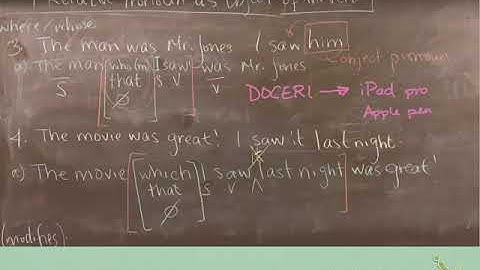 Relative Pronoun as Object of
where/whose
3. The man was Mr. Jones I saw him
object pronoun
a) The man who(m) I saw was Mr. Jones
that
∅
S S V V
DOCERI → iPad pro
Apple pen
4. The movie was great! I saw it last night.
a) The movie which I saw last night was great!
that S V
∅
(modifies).